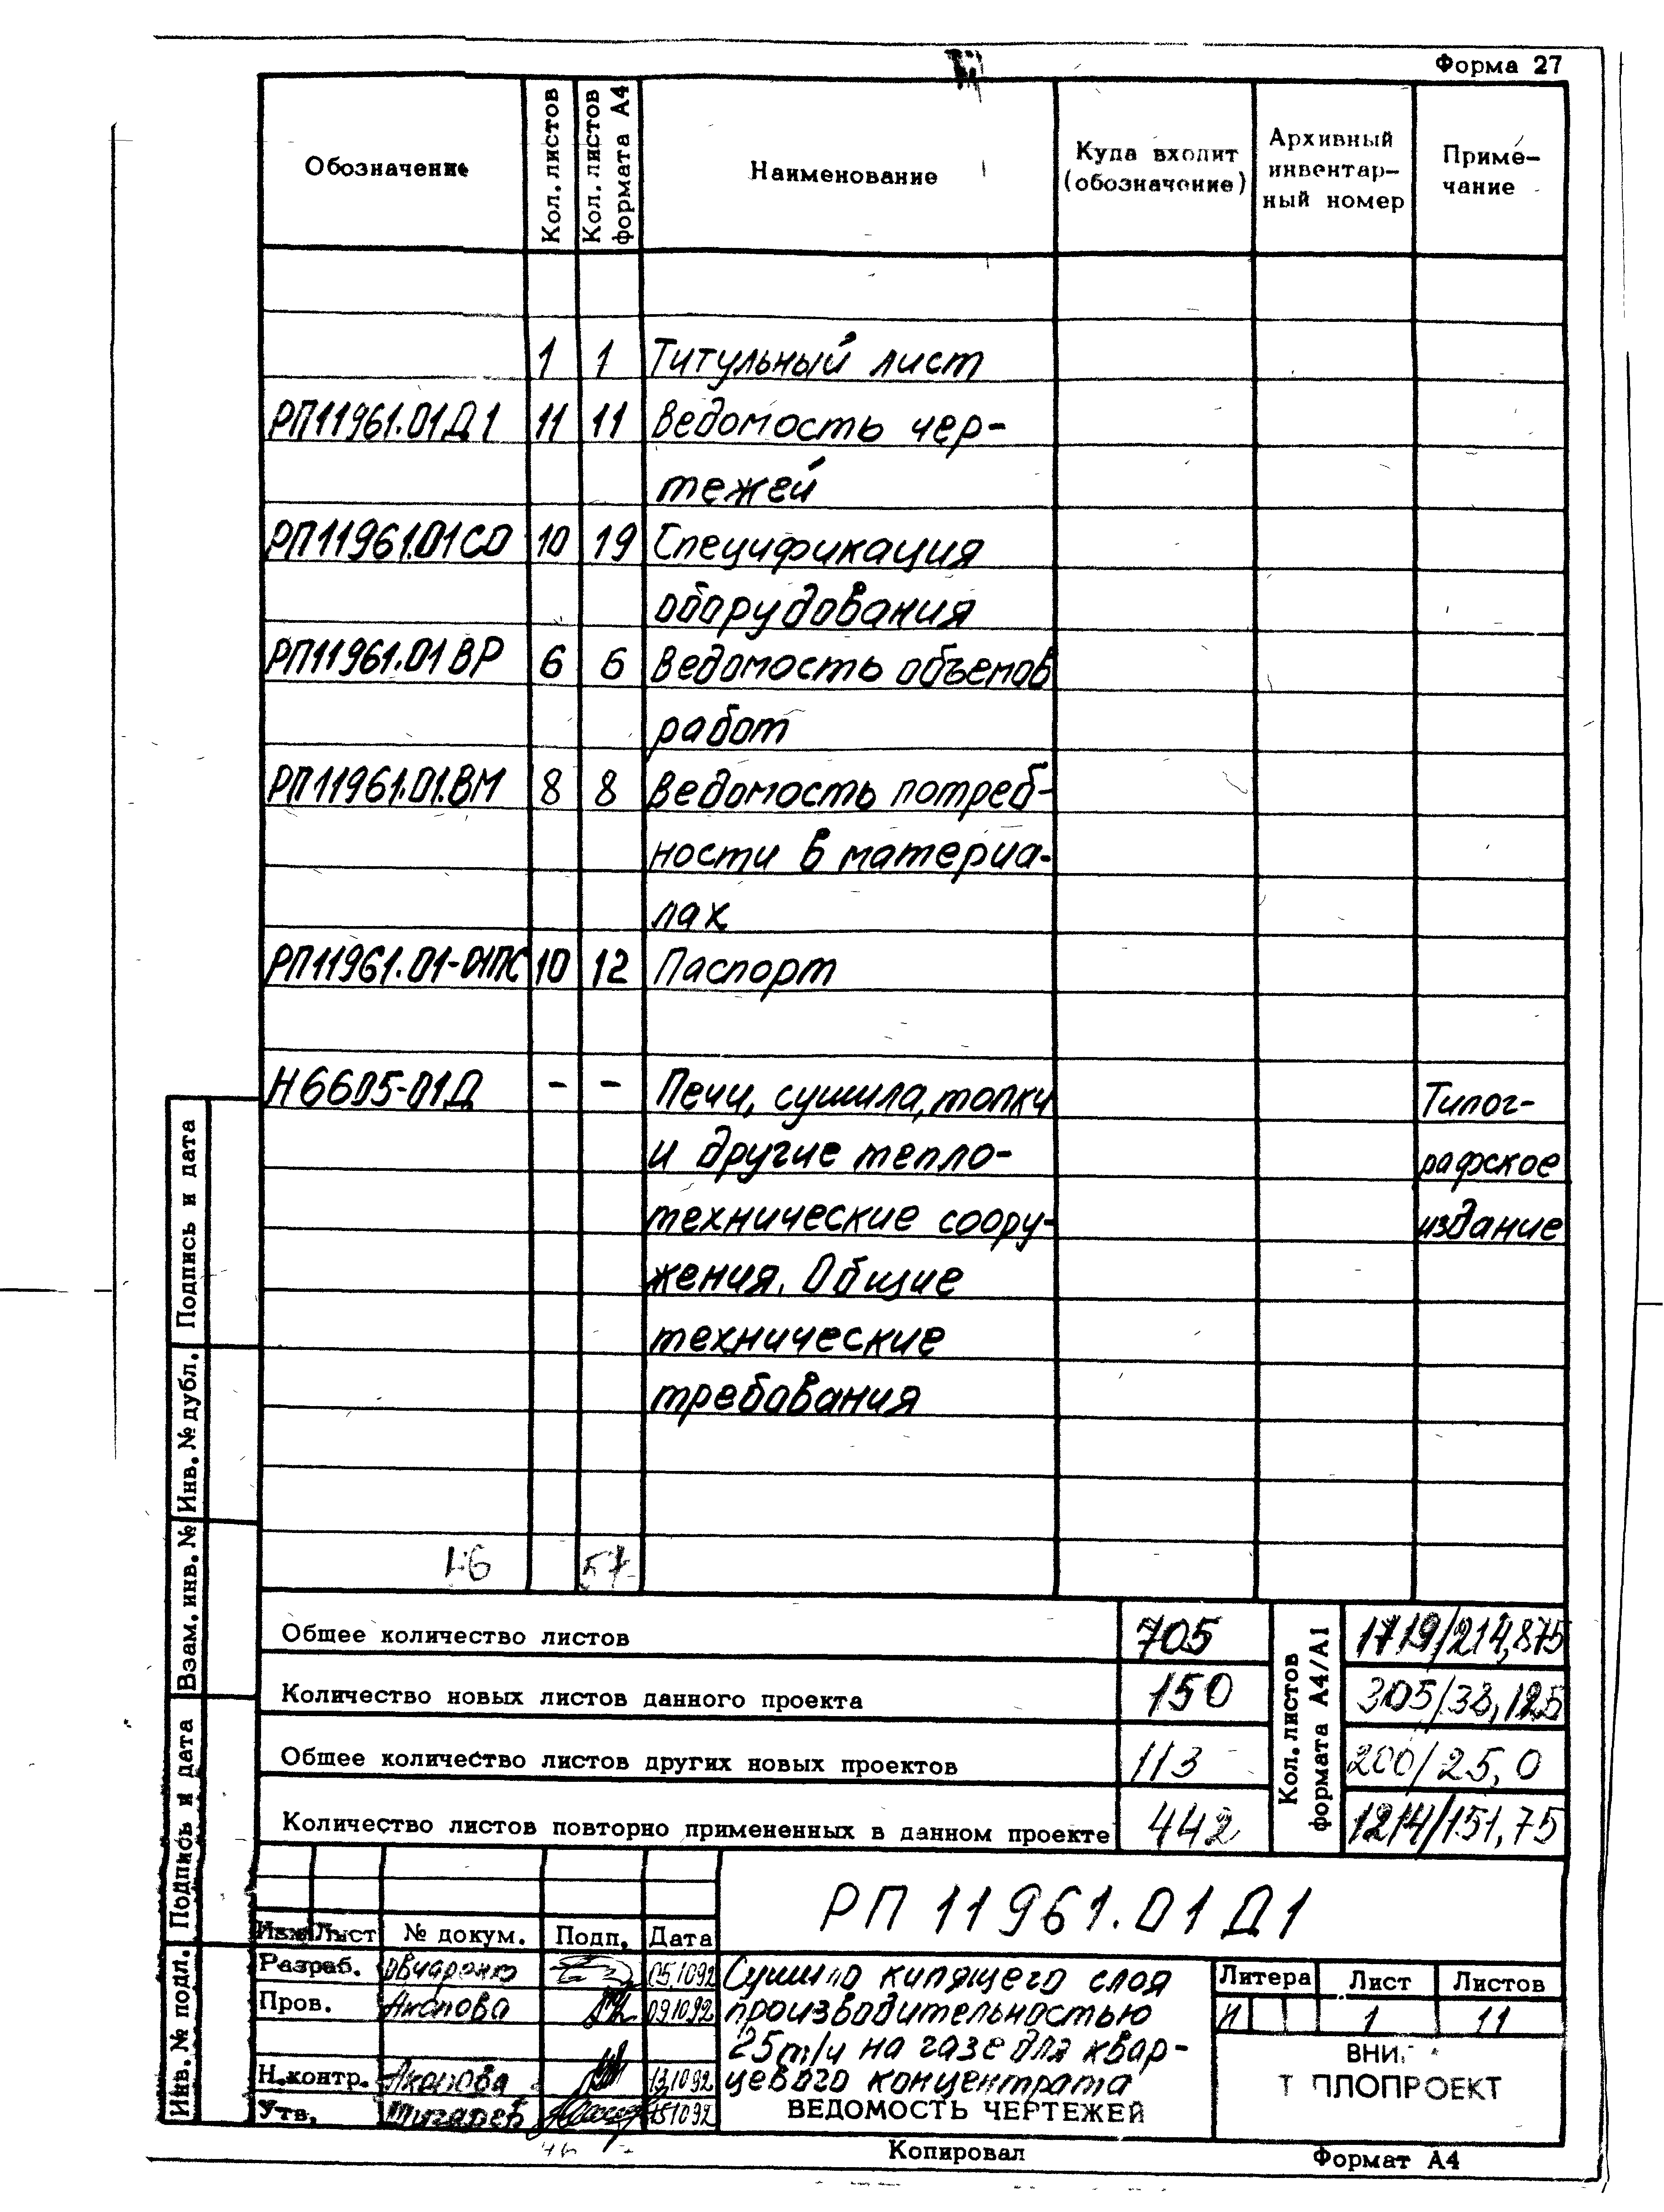 Форма 27
Обозначение
Кол. листов
Кол. листов формата А4
Наименование
Куда входит (обозначение)
Архивный инвентарный номер
Приме-
чание
1 1 Титульный лист
РП11961.01Д1 11 11 Ведомость чер-
тежей
РП11961.01СО 10 19 Спецификация
оборудования
РП11961.01ВР 6 6 Ведомость объемов
работ
РП11961.01.ВМ 8 8 Ведомость потреб-
ности в материа-
лах
РП11961.01-01ПС 10 12 Паспорт
Н6605-01Д - - Печи, сушила, топки Типог-
и другие тепло- рафское
технические соору- издание
жения. Общие
технические
требования
57
Общее количество листов 705 1719/214,875
Количество новых листов данного проекта 150 305/38,125
Общее количество листов других новых проектов 113 200/25,0
Количество листов повторно примененных в данном проекте 442 1214/151,75
Кол. листов формата А4/А1
РП 11961.01Д1
Изм Лист № докум. Подп. Дата
Разраб. Овчаренко 05.10.92
Пров. Акопова 09.10.92
Н.контр. Акопова 13.10.92
Утв. 15.10.92
Сушило кипящего слоя
производительностью
25т/ч на газе для квар-
цевого концентрата
ВЕДОМОСТЬ ЧЕРТЕЖЕЙ
Литера Лист Листов
И 1 11
ВНИ
Т ПЛОПРОЕКТ
Копировал Формат А4
Инв. № подл. Подпись и дата Взам. инв. № Инв. № дубл. Подпись и дата